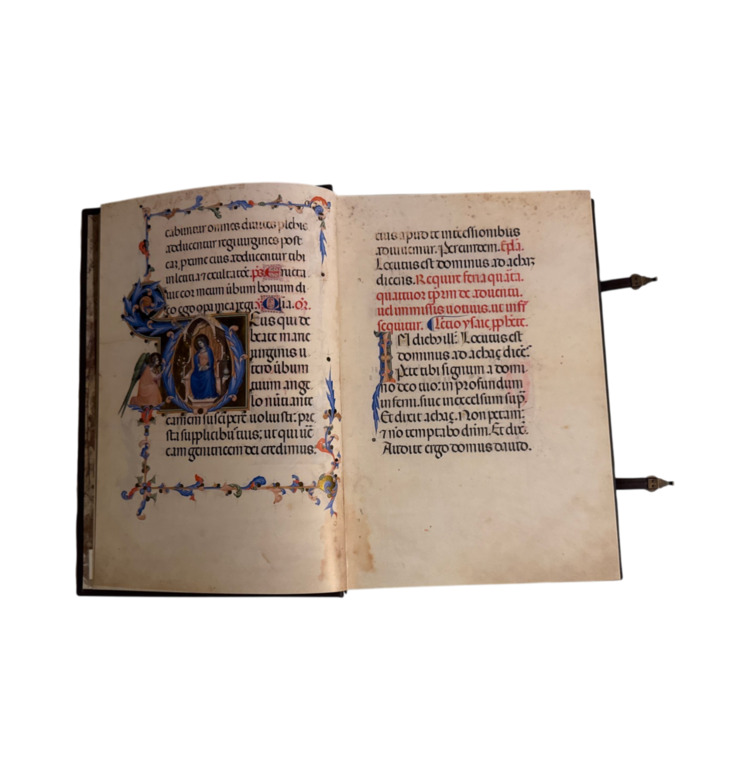 cabuntur omnes diuites plebis
adducentur regi uirgines post
eā. proxime eius adducentur tibi
in leticia ⁊ exultatōe. ps Eructa
uit cor meum uerbum bonum di
co ego opa mea regi. Alia. or.
Deus qui de
beate marie
uirginis u
tero uerbum
tuum ange
lo nūtiante
carnem suscipere uoluisti: pre
sta supplicibus tuis: ut qui uere
eam genitricem dei credimus:
eius apud te intercessionibus
adiuuemur. Per eundem. Epla.
Locutus est dominus ad achaz
dicens. Require feria quarta.
quattuor tprm de aduentu.
uel in missis uotiuis. ut infr
sequitur. Lectio ysaie pphete.
In diebus illis Locutus est
dominus ad achaz dicens
Pete tibi signum a domi
no deo tuo: in profundum
inferni. siue in excelsum supra
Et dixit achaz. Non petam:
⁊ nō temptabo dnm. Et dixit.
Audite ergo domus dauid.